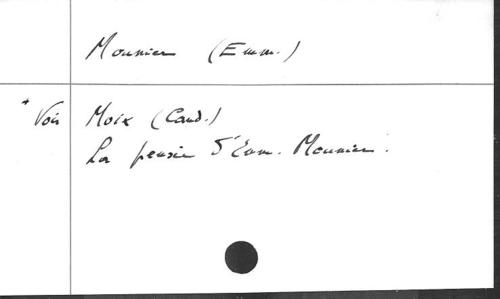 Mounier (Emm.)
* Voir Moix (Cand.)
La pensée d'Emm. Mounier.